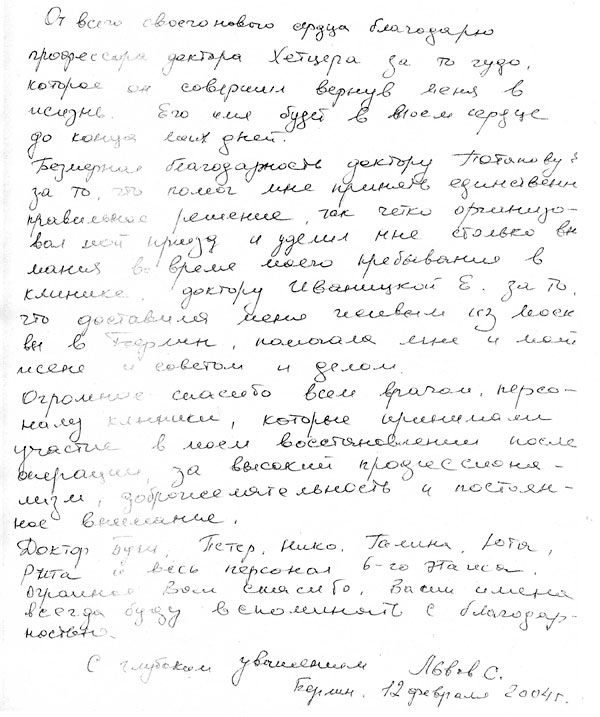 От всего своего нового сердца благодарю
профессора доктора Хетцера за то чудо,
которое он совершил вернув меня в
жизнь. Его имя будет в моем сердце
до конца моих дней.
Безмерная благодарность доктору Потапову
за то, что помог мне принять единственн
правильное решение, так четко организо-
вал мой приезд и уделил мне столько вни
мания во время моего пребывания в
клинике, доктору Иваницкой Е. за то,
что доставила меня живым из Моск
вы в Берлин, помогала мне и моей
жене и советом и делом.
Огромное спасибо всем врачам, персо-
налу клиники, которые принимали
участие в моем восстановлении после
операции, за высокий профессиона-
лизм, доброжелательность и постоян-
ное внимание.
Доктор Петер, Нико, Галина, Юта,
Рита и весь персонал 6-го этажа.
Огромное Вам спасибо. Ваши имена
всегда буду вспоминать с благодар-
ностью.
С глубоким уважением Львов С.
Берлин, 12 февраля 2004г.